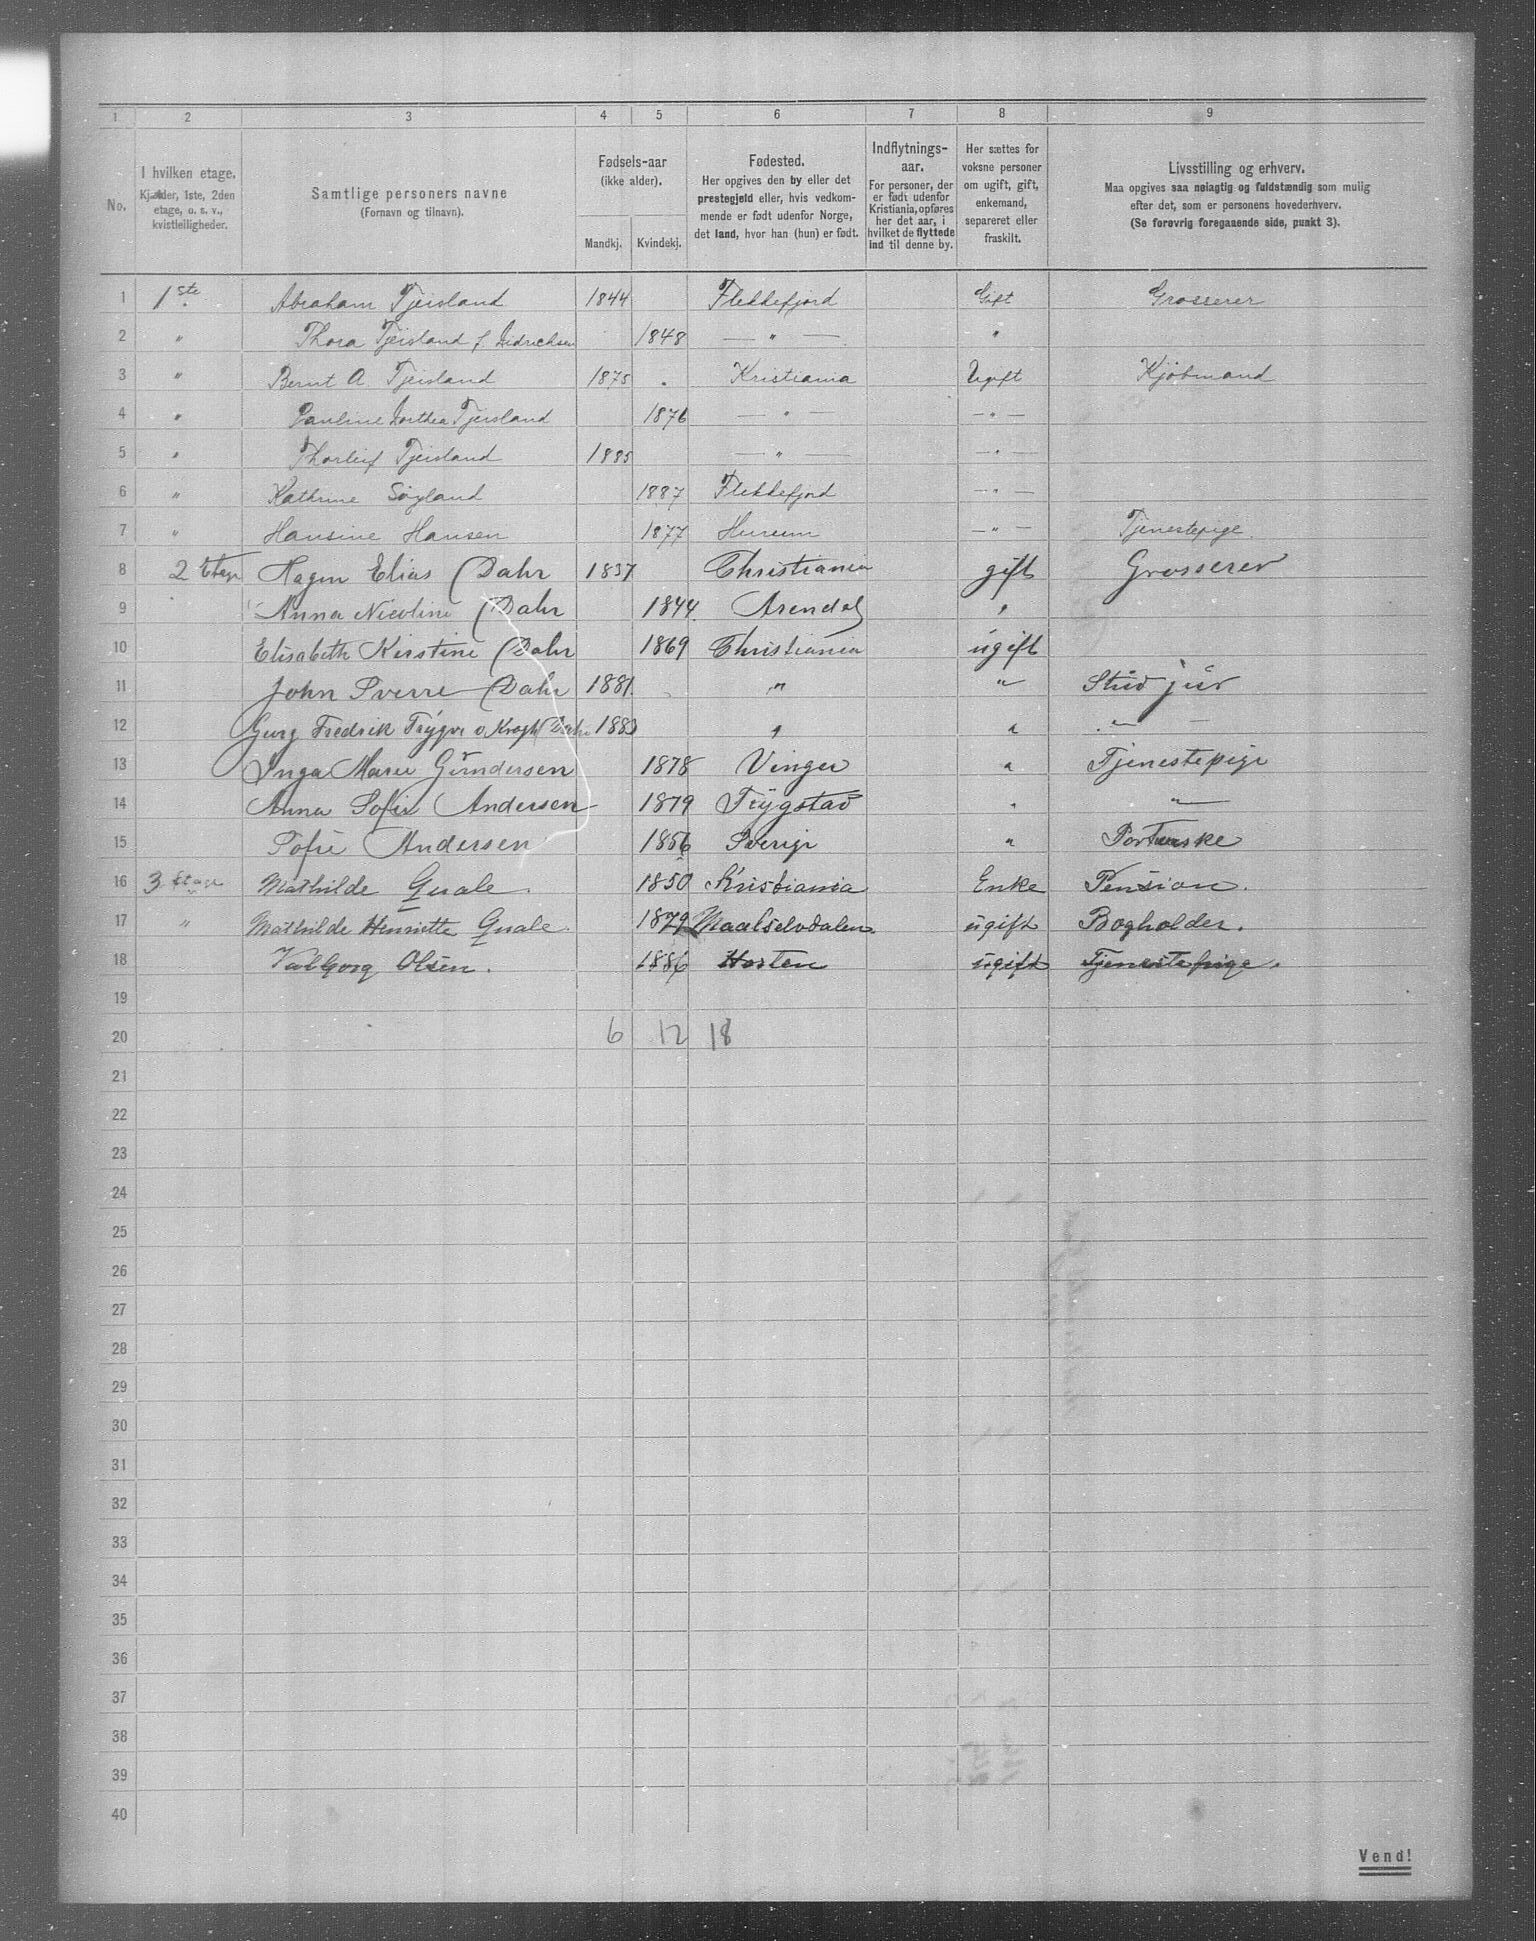 1 2 3 4 5 6 7 8 9
No.
I hvilken etage.
Kjælder, 1ste, 2den
etage, o. s. v.,
kvistleiligheder.
Samtlige personers navne
(Fornavn og tilnavn).
Fødsels-aar
(ikke alder).
Mandkj. Kvindekj.
Fødested.
Her opgives den by eller det
prestegjeld eller, hvis vedkom-
mende er født udenfor Norge,
det land, hvor han (hun) er født.
Indflytnings-
aar.
For personer, der
er født udenfor
Kristiania, opføres
her det aar, i
hvilket de flyttede
ind til denne by.
Her sættes for
voksne personer
om ugift, gift,
enkemand,
separeret eller
fraskilt.
Livsstilling og erhverv.
Maa opgives saa nøiagtig og fuldstændig som mulig
efter det, som er personens hovederhverv.
(Se forøvrig foregaaende side, punkt 3).
1 1ste Abraham Tjersland 1844 Flekkefjord Gift Grosserer
2 " Thora Tjersland f. Didrichsen 1848 — " — "
3 " Bernt A. Tjersland 1875 Kristiania Ugift Kjøbmand
4 " Pauline Dorthea Tjersland 1876 — " — — " —
5 " Thorleif Tjersland 1885 — " — " —
6 " Kathrine Søyland 1887 Flekkefjord — " —
7 " Hansine Hansen 1877 Hurum — " — Tjenestepige.
8 2 Etage Elias Dahr 1837 Christiania gift Grosserer
9 Anna Nicoline Dahr 1844. Arendal "
10 Elisabeth Kirstine Dahr 1869 Christiania ugift
11 John Sverre Dahr 1881. " " Stud jur
12 Fredrik Trygve v. Krogh Dahr 1883 " " " —
13 Inga Marie Gundersen 1878 Vinger " Tjenestepige
14 Anna Sofie Andersen 1879 Trygstad " "
15 Sofie Andersen 1856 Sverige "
16 3 Etage Mathilde Quale. 1850 Kristiania Enke Pension.
17 " Mathilde Henriette Quale. 1879 Maalselvdalen. ugift Bogholder.
18 Valborg Olsen. 1886 Horten ugift Tjenestepige.
19
20 6 12 18
21
22
23
24
25
26
27
28
29
30
31
32
33
34
35
36
37
38
39
40
Vend!